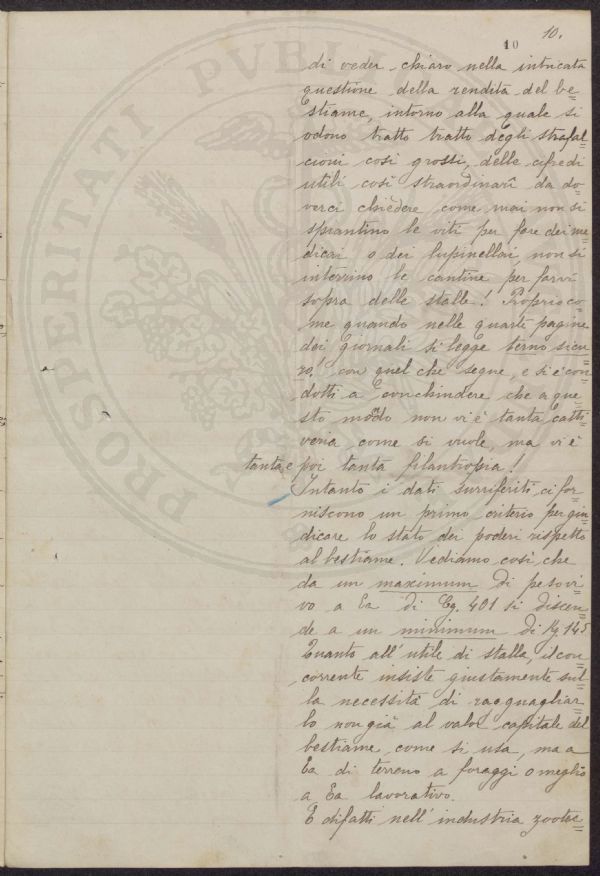 10.
10
di veder chiaro nella intricata
questione della rendita del be=
stiame, intorno alla quale si
odono tratto tratto degli strafal=
cioni così grossi, delle cifre di
utili così straordinarî da do=
verci chiedere come mai non si
spiantino le viti per fare dei me=
dicai o dei lupinellai, non si
interrino le cantine per farvi
sopra delle stalle! Proprio co=
me quando nelle quarte pagine
dei giornali si legge terno sicu=
ro! con quel che segue, e si è con=
dotti a conchiudere che a que=
sto mondo non vi è tanta catti=
veria come si vuole, ma vi è
tanta, e poi tanta filantropia!
Intanto i dati surriferiti ci for=
niscono un primo criterio per giu=
dicare lo stato dei poderi rispetto
al bestiame. Vediamo così che
da un maximum di peso vi=
vo a Ea di Cg. 401 si discen=
de a un minimum di Kg 145
Quanto all'utile di stalla, il con=
corrente insiste giustamente sul=
la necessità di ragguagliar=
lo non già al valor capitale del
bestiame, come si usa, ma a
Ea di terreno a foraggi o meglio
a Ea lavorativo.
E difatti nell'industria zootec=
PROSPERITATI PVBLICAE